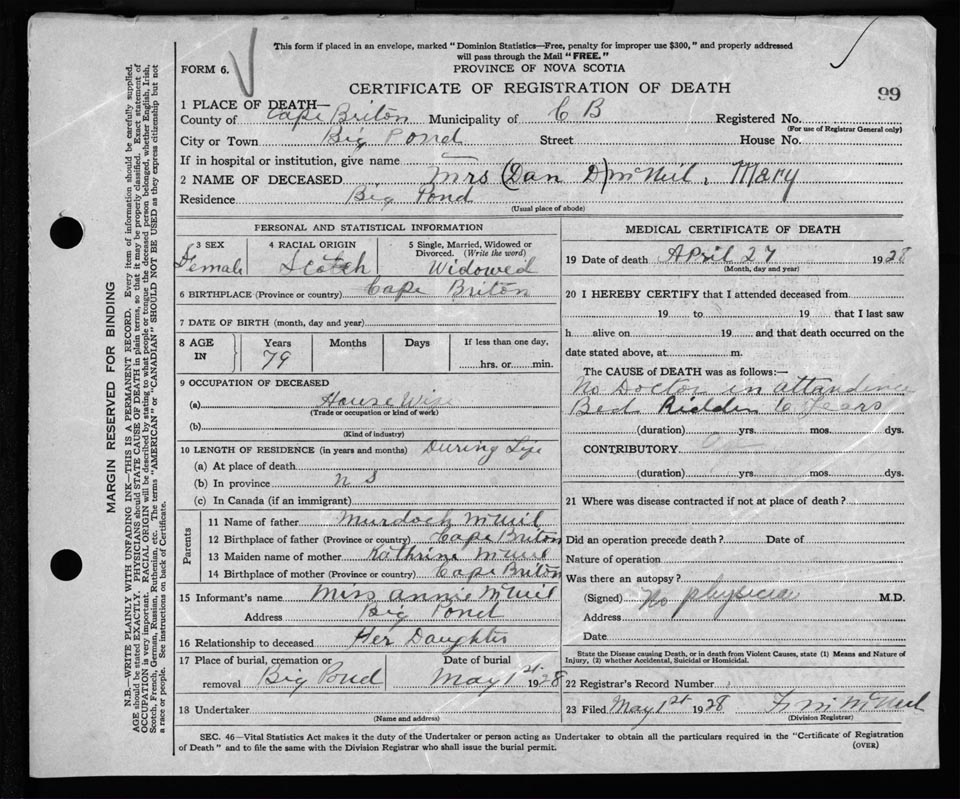 This form if placed in an envelope, marked "Dominion Statistics—Free, penalty for improper use $300," and properly addressed
will pass through the Mail "FREE."
FORM 6.
PROVINCE OF NOVA SCOTIA
CERTIFICATE OF REGISTRATION OF DEATH
99
1 PLACE OF DEATH—
County of Cape Briton Municipality of C B Registered No.
(For use of Registrar General only)
City or Town Big Pond Street House No.
If in hospital or institution, give name
2 NAME OF DECEASED Mrs (Dan D) McNeil, Mary
Residence Big Pond
(Usual place of abode)
PERSONAL AND STATISTICAL INFORMATION
3 SEX 4 RACIAL ORIGIN 5 Single, Married, Widowed or Divorced. (Write the word)
Female Scotch Widowed
6 BIRTHPLACE (Province or country) Cape Briton
7 DATE OF BIRTH (month, day and year)
8 AGE IN Years Months Days If less than one day,
79 hrs. or min.
9 OCCUPATION OF DECEASED
(a) House Wife
(Trade or occupation or kind of work)
(b)
(Kind of industry)
10 LENGTH OF RESIDENCE (in years and months) During Life
(a) At place of death
(b) In province N S
(c) In Canada (if an immigrant)
Parents
11 Name of father Murdoch McNeil
12 Birthplace of father (Province or country) Cape Briton
13 Maiden name of mother Kathrine McNeil
14 Birthplace of mother (Province or country) Cape Briton
15 Informant's name Miss Annie McNeil
Address Big Pond
16 Relationship to deceased Her Daughter
17 Place of burial, cremation or removal Big Pond Date of burial May 1st 1928
18 Undertaker
(Name and address)
MEDICAL CERTIFICATE OF DEATH
19 Date of death April 27 1928
(Month, day and year)
20 I HEREBY CERTIFY that I attended deceased from
19 to 19 that I last saw
h alive on 19 and that death occurred on the
date stated above, at m.
The CAUSE of DEATH was as follows:—
No Doctor in attendence
Bed Ridden 6 Years
(duration) yrs. mos. dys.
CONTRIBUTORY
(duration) yrs. mos. dys.
21 Where was disease contracted if not at place of death?
Did an operation precede death? Date of
Nature of operation
Was there an autopsy?
(Signed) No physician M.D.
Address
Date
State the Disease causing Death, or in death from Violent Causes, state (1) Means and Nature of
Injury, (2) whether Accidental, Suicidal or Homicidal.
22 Registrar's Record Number
23 Filed May 1st 1928 McNeil
(Division Registrar)
SEC. 46—Vital Statistics Act makes it the duty of the Undertaker or person acting as Undertaker to obtain all the particulars required in the "Certificate of Registration
of Death" and to file the same with the Division Registrar who shall issue the burial permit.
(OVER)
MARGIN RESERVED FOR BINDING
N.B.—WRITE PLAINLY WITH UNFADING INK—THIS IS A PERMANENT RECORD. Every item of information should be carefully supplied.
AGE should be stated EXACTLY. PHYSICIANS should STATE CAUSE OF DEATH in plain terms, so that it may be properly classified. Exact statement of
OCCUPATION is very important. RACIAL ORIGIN will be described by stating to what people or tongue the deceased person belonged, whether English, Irish,
Scotch, French, German, Russian, Ruthenian, etc. The terms "AMERICAN" or "CANADIAN" SHOULD NOT BE USED as they express citizenship but not
a race or people. See instructions on back of Certificate.